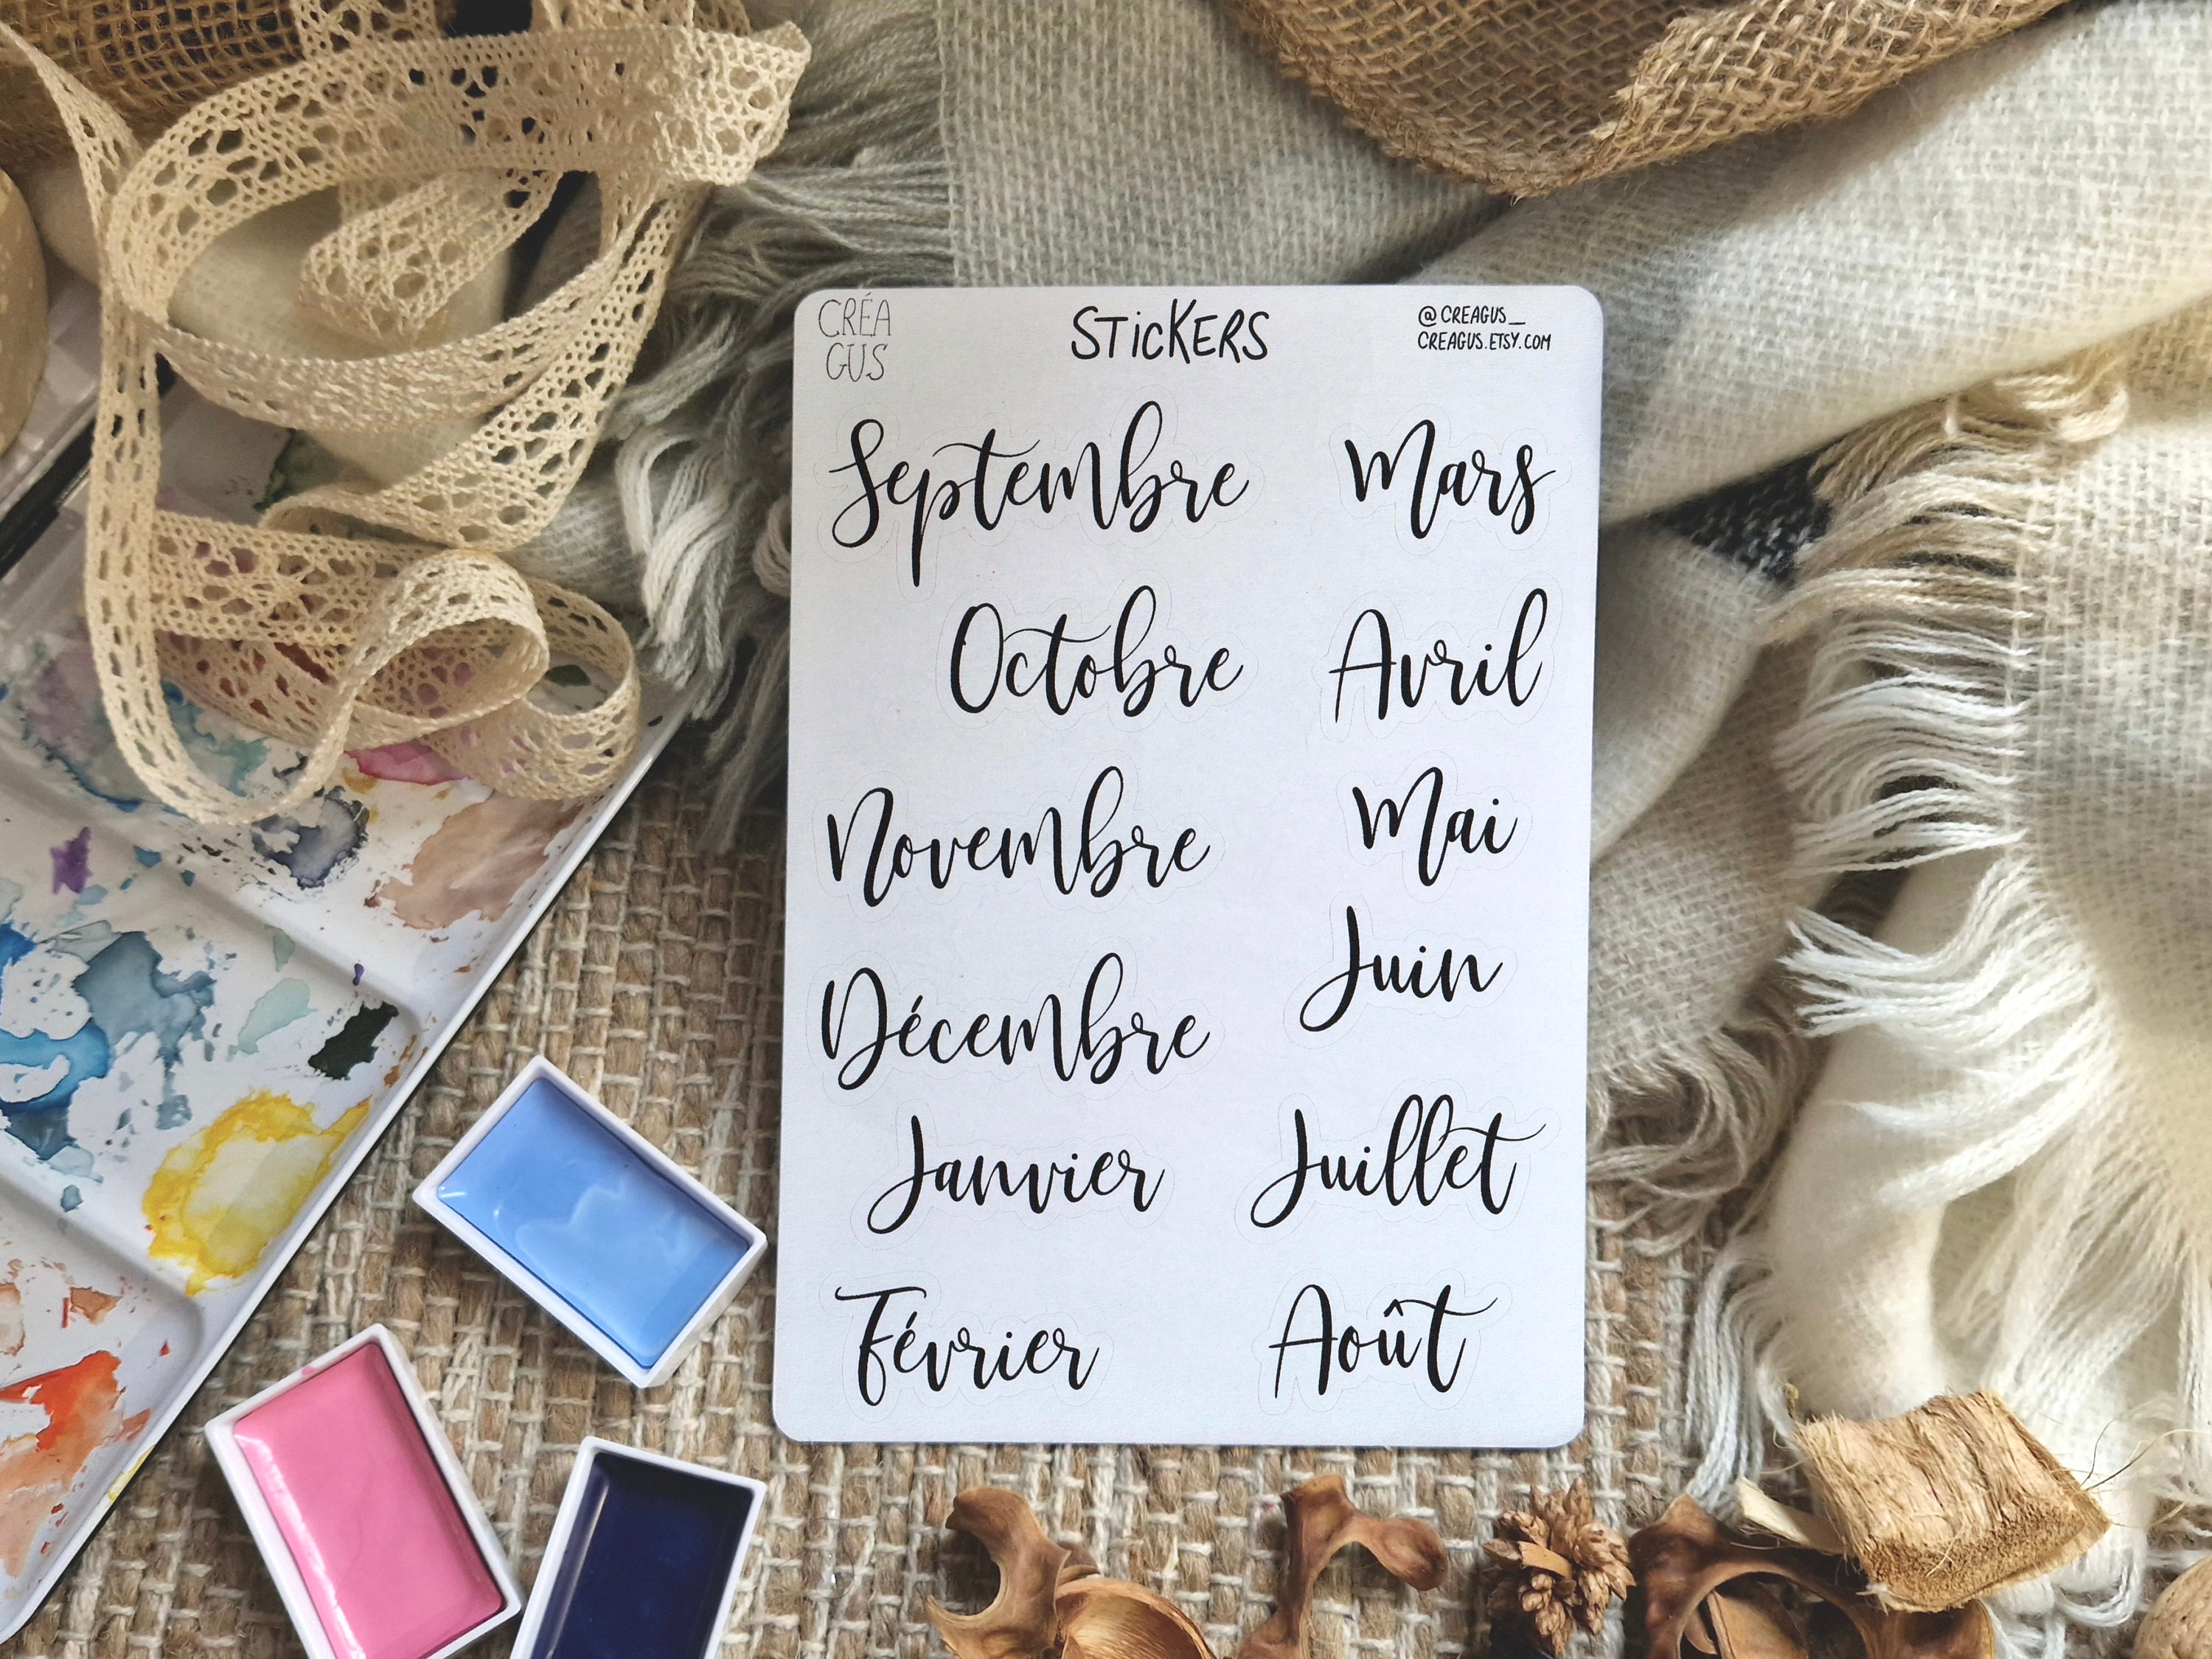 CRÉA
GUS
STiCKERS
@CREAGUS_
CREAGUS.ETSY.COM
Septembre
Octobre
Novembre
Décembre
Janvier
Février
Mars
Avril
Mai
Juin
Juillet
Août